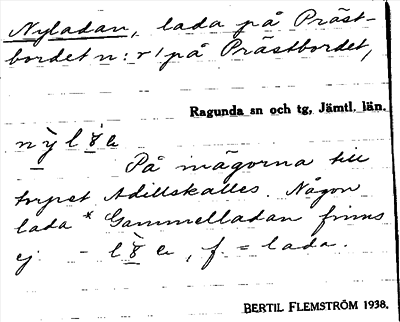 Nyladan, lada på Präst-
bordet n:r 1 på Prästbordet,
Ragunda sn och tg, Jämtl. län.
På mågorna till
torpet Adillskalles. Någon
lada * Gammelladan finns
ej. - f. = lada.
BERTIL FLEMSTRÖM 1938.